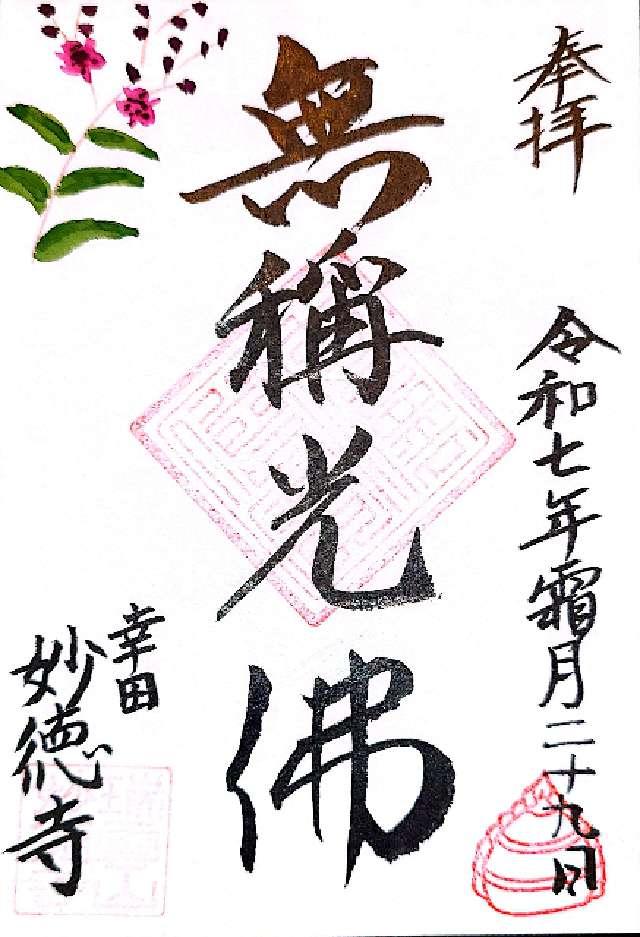 奉拝
令和七年霜月二十九日
無稱光佛
幸田
妙徳寺